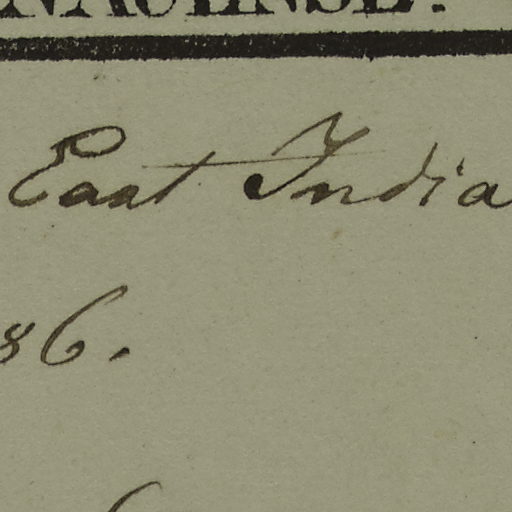 East India
86.